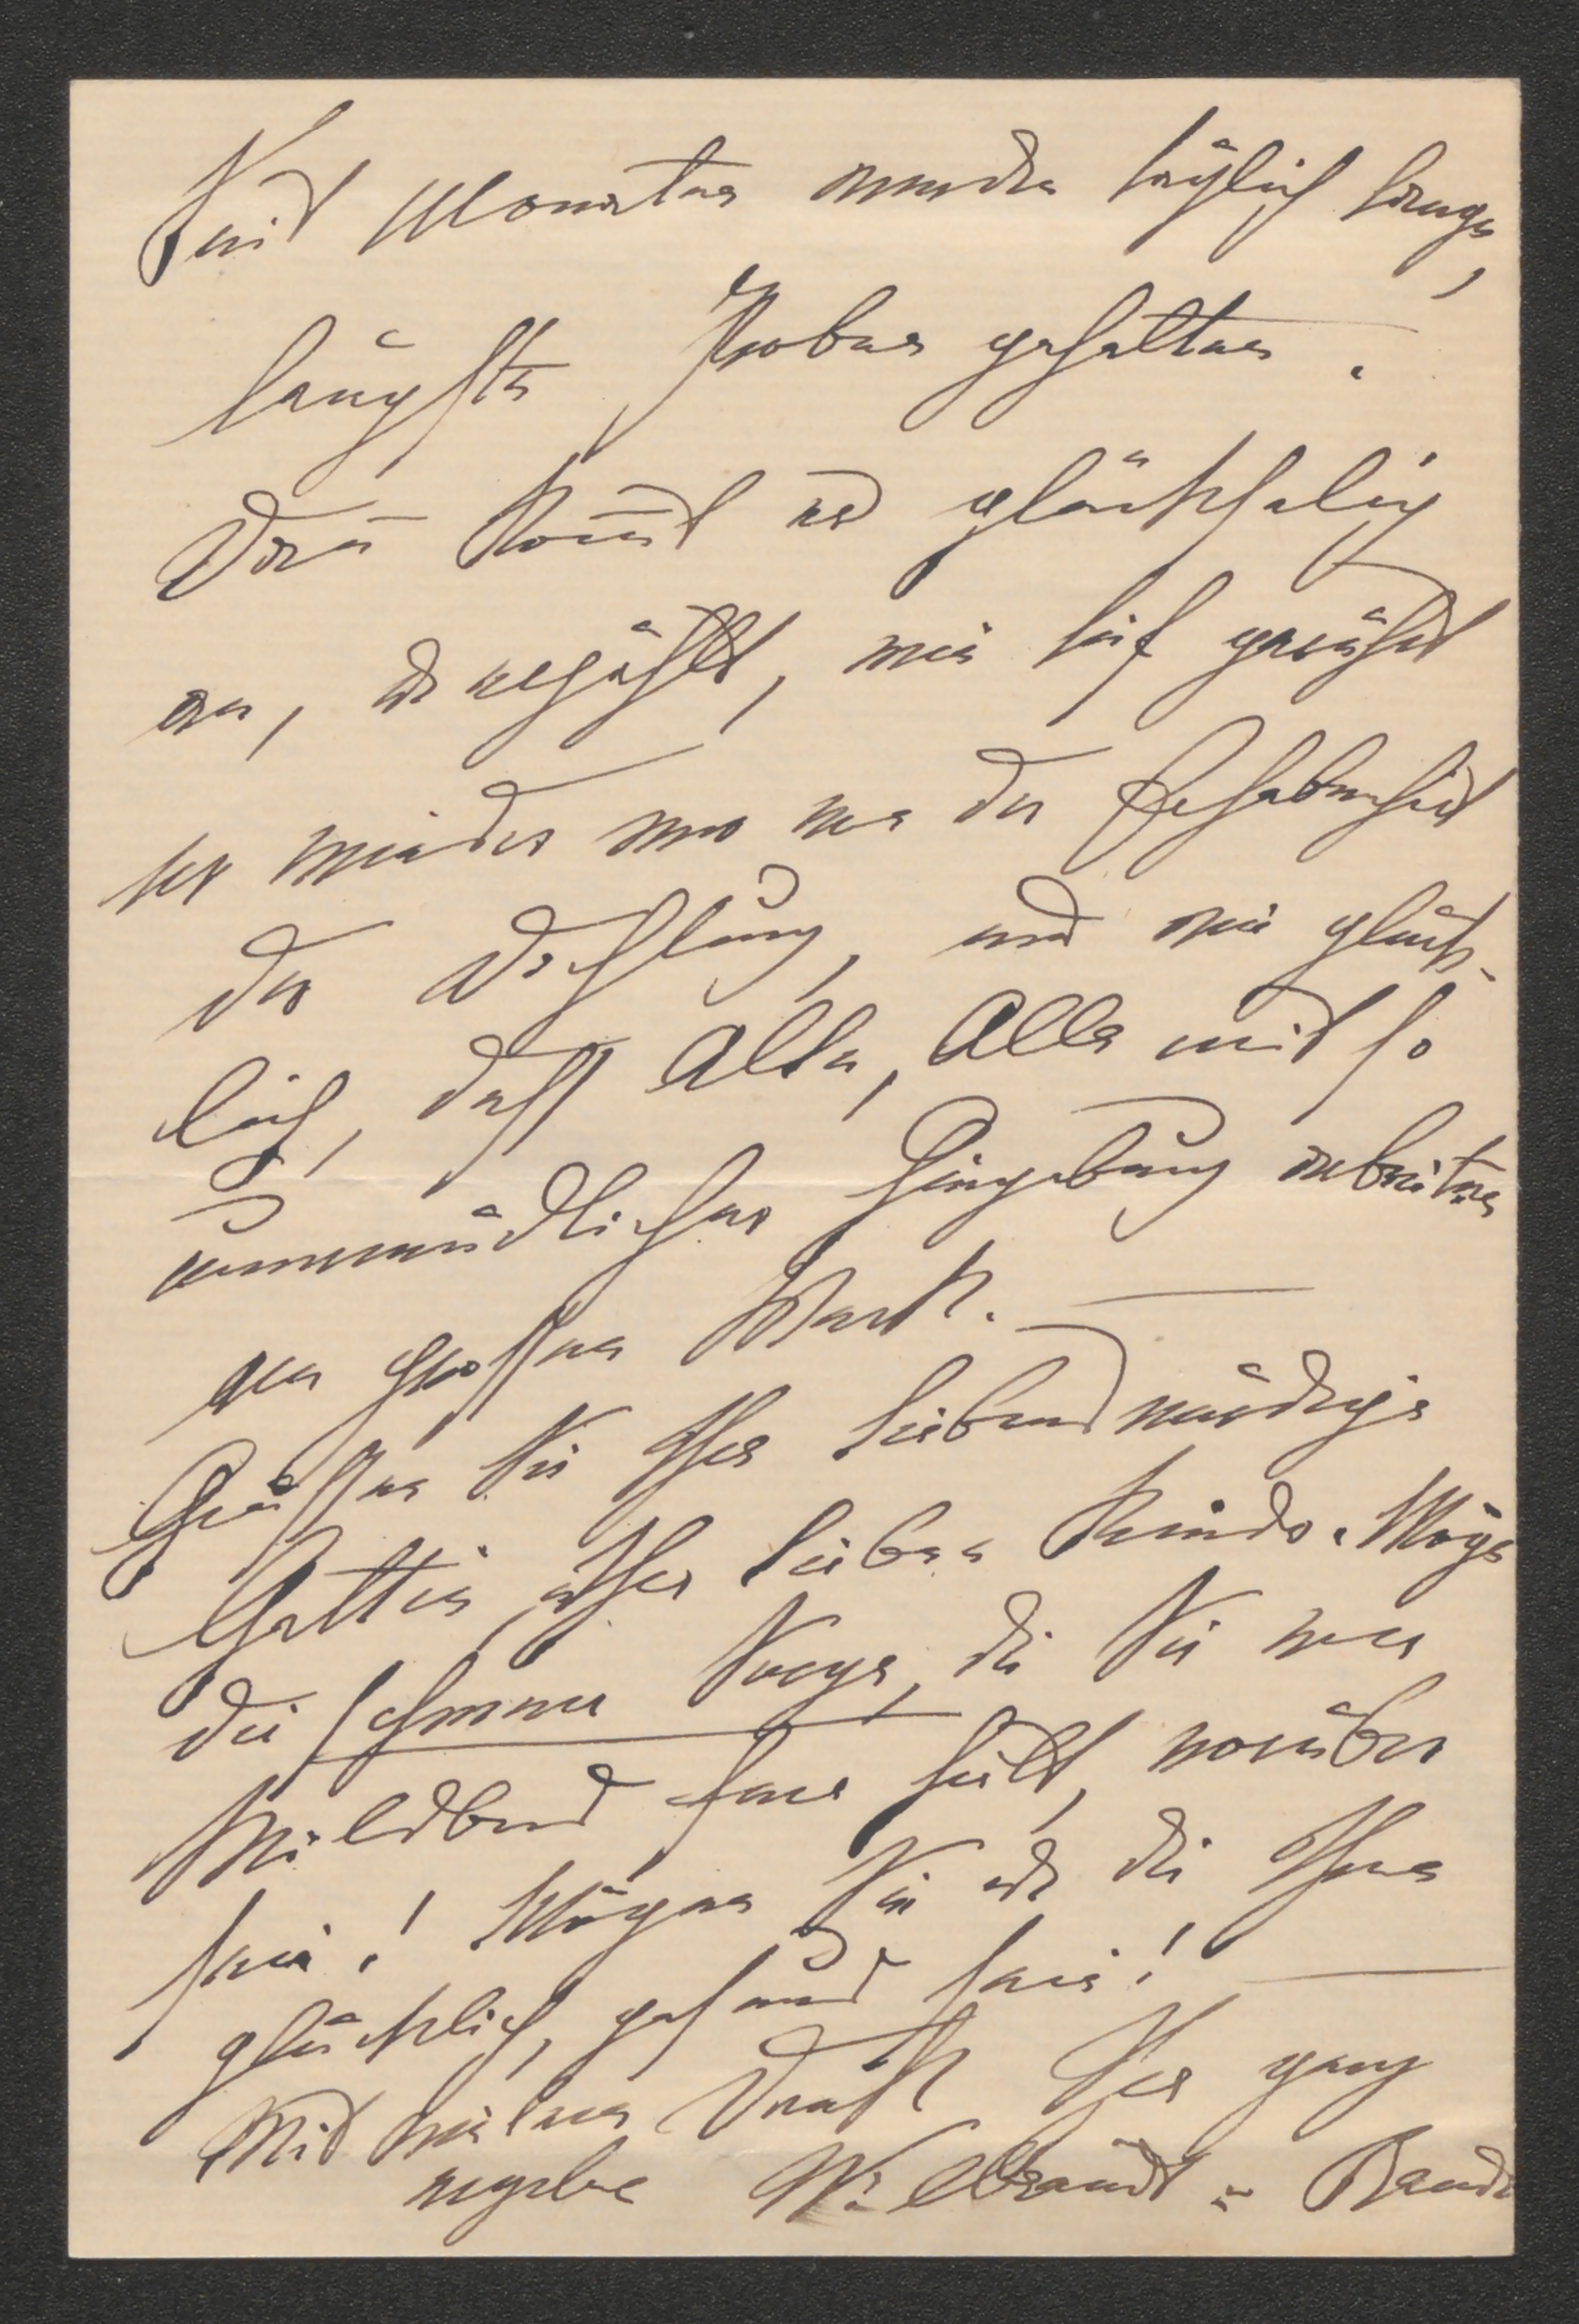 Seit Monaten werden täglich lange,
längste Proben gehalten.
Dan̄ kom̄t er glückselig
an, u erzählt, wie tief gerührt
er wieder war von der Erhabenheit
der Dichtung, und wie glück-
lich, daß Alle, Alle mit so
unermüdlicher Hingebung arbeiten
am großen Werk. —
Grüßen Sie Ihre liebenswürdige
Gattin, Ihre lieben Kinder. Möge
die schwere Sorge, die Sie von
Wildbad fern hält, vorüber
sein! Mögen Sie u die Ihren
glücklich, gesund sein! —
Mit vielem Dank Ihr ganz
ergebene Wilbrandt-Baudi